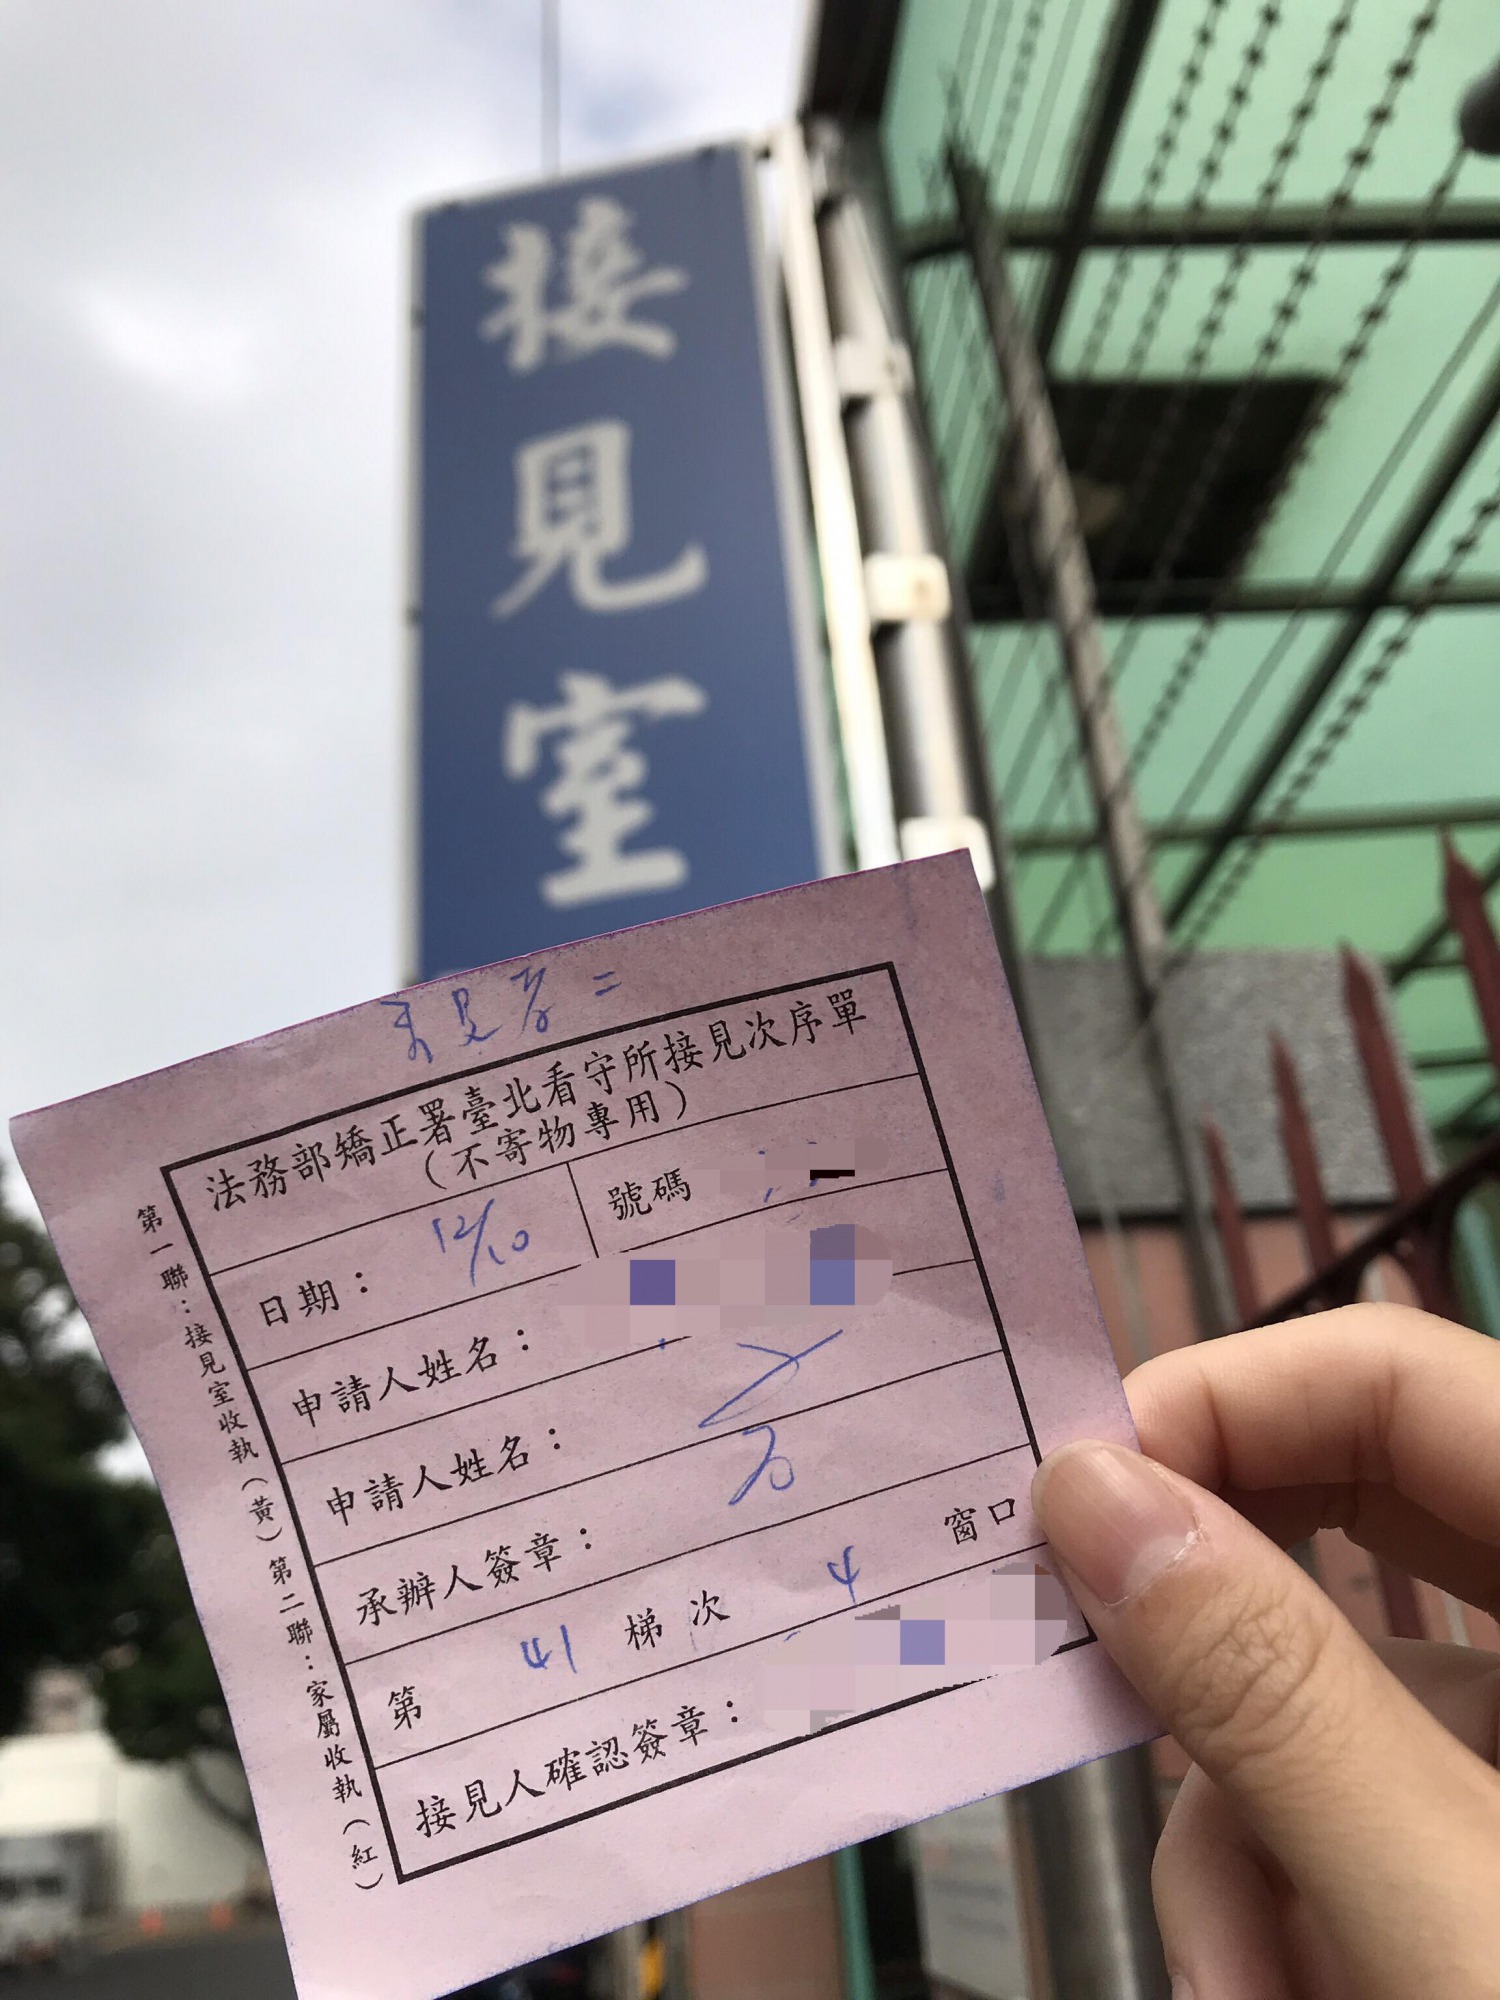 接見室
法務部矯正署臺北看守所接見次序單
（不寄物專用）
日期： 12/10
號碼
申請人姓名：
申請人姓名：
承辦人簽章：
第 41 梯次 4 窗口
接見人確認簽章：
第一聯：接見室收執（黃）第二聯：家屬收執（紅）